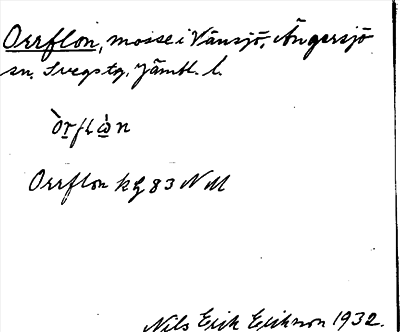 Orrflon, mosse i Vänsjö, Ängersjö
sn. Svegs tg. Jämtl. l.
òr̠fλὼ̠n
Orrflon kg 83 NM
Nils Erik Erikson 1932.